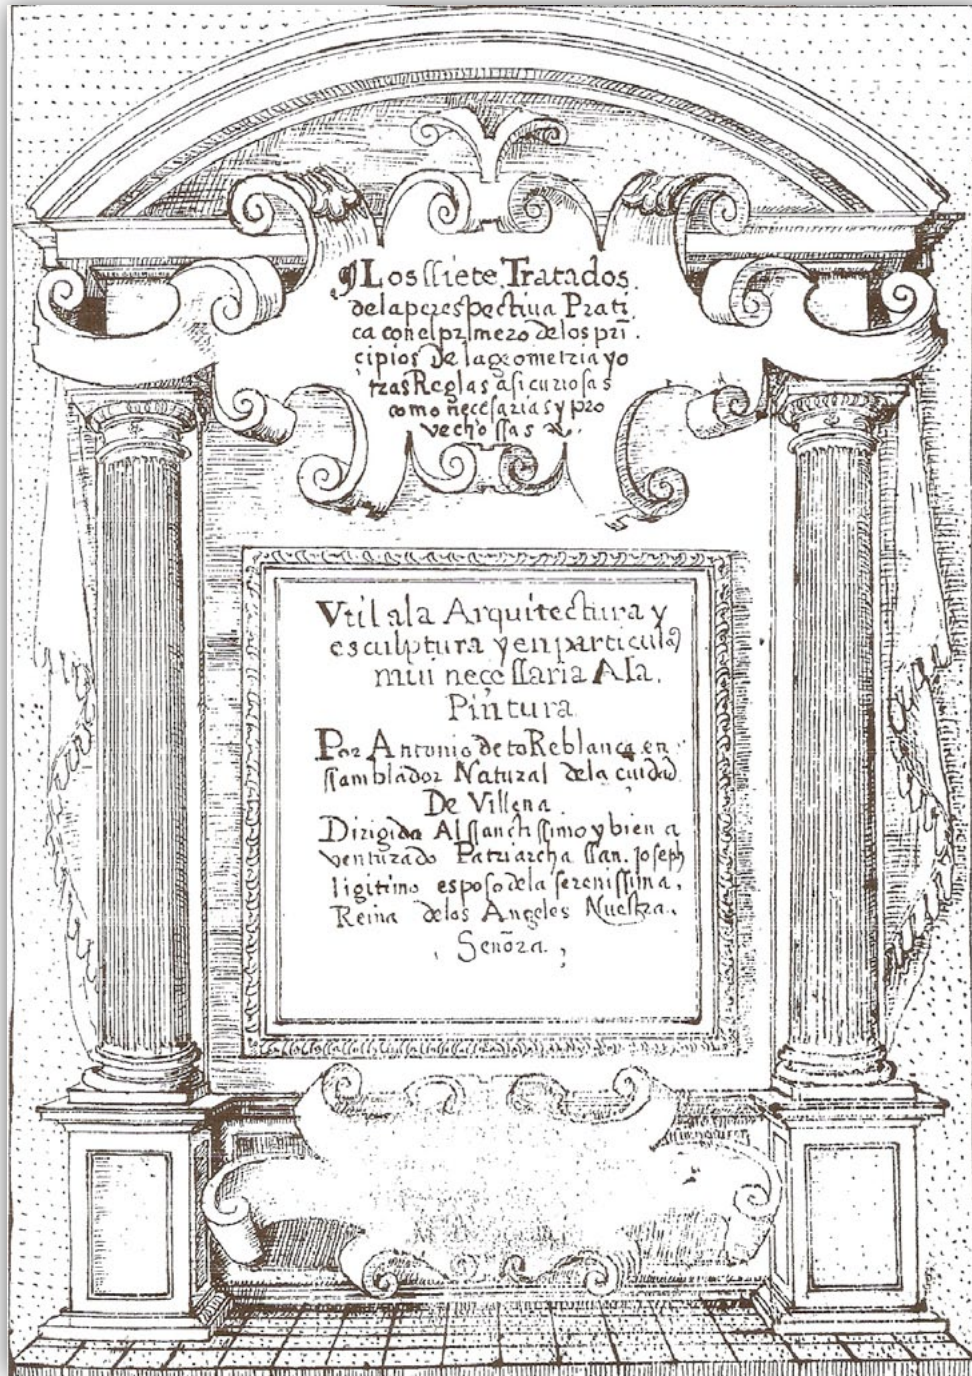 Los ſſiete Tratados
de la perespectiua Prati
ca con el primero de los pri
cipios de la geometria y o
tras Reglas asi curiosas
como neçesarias y pro
vechoſſas &.
Vtil ala Arquitectura y
esculptura y en particular
mui neçeſſaria Ala
Pintura
Por Antonio de toRe blanca en
ſſamblador Natural de la cuidad
De Villena
Dirigida Al ſſanctiſſimo y bien a
venturado Patriarcha ſſan. Joseph
ligitimo esposo de la sereniſſima,
Reina de los Angeles Nuestra.
Señora.